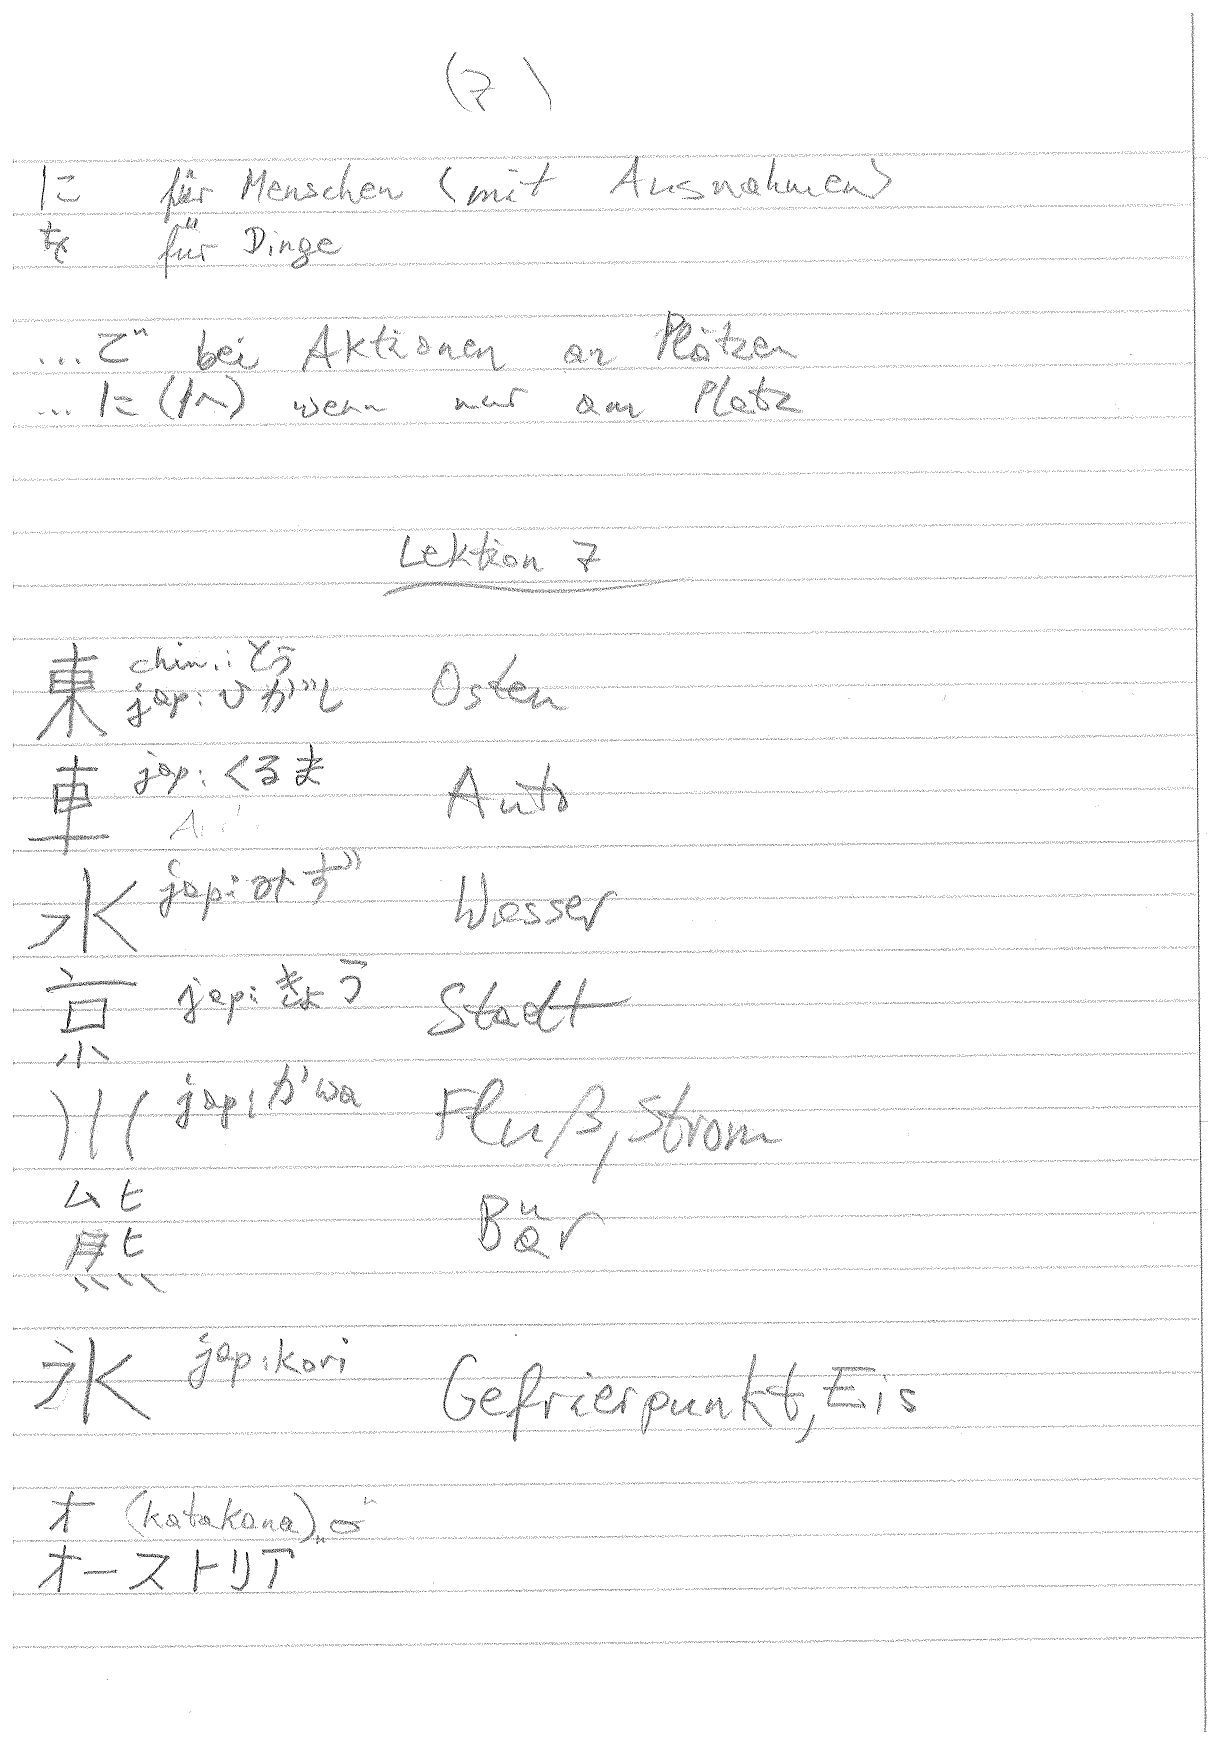 (7)
に für Menschen (mit Ausnahmen)
を für Dinge
...で bei Aktionen an Plätzen
...に (へ) wenn nur am Platz
Lektion 7
東 chin.: とう
jap: ひがし Osten
車 jap: くるま Auto
水 jap: みず Wasser
京 jap: きょう Stadt
川 jap: かwa Fluß, Strom
熊 Bär
氷 jap: kori Gefrierpunkt, Eis
オ (katakana) „o“
オーストリア